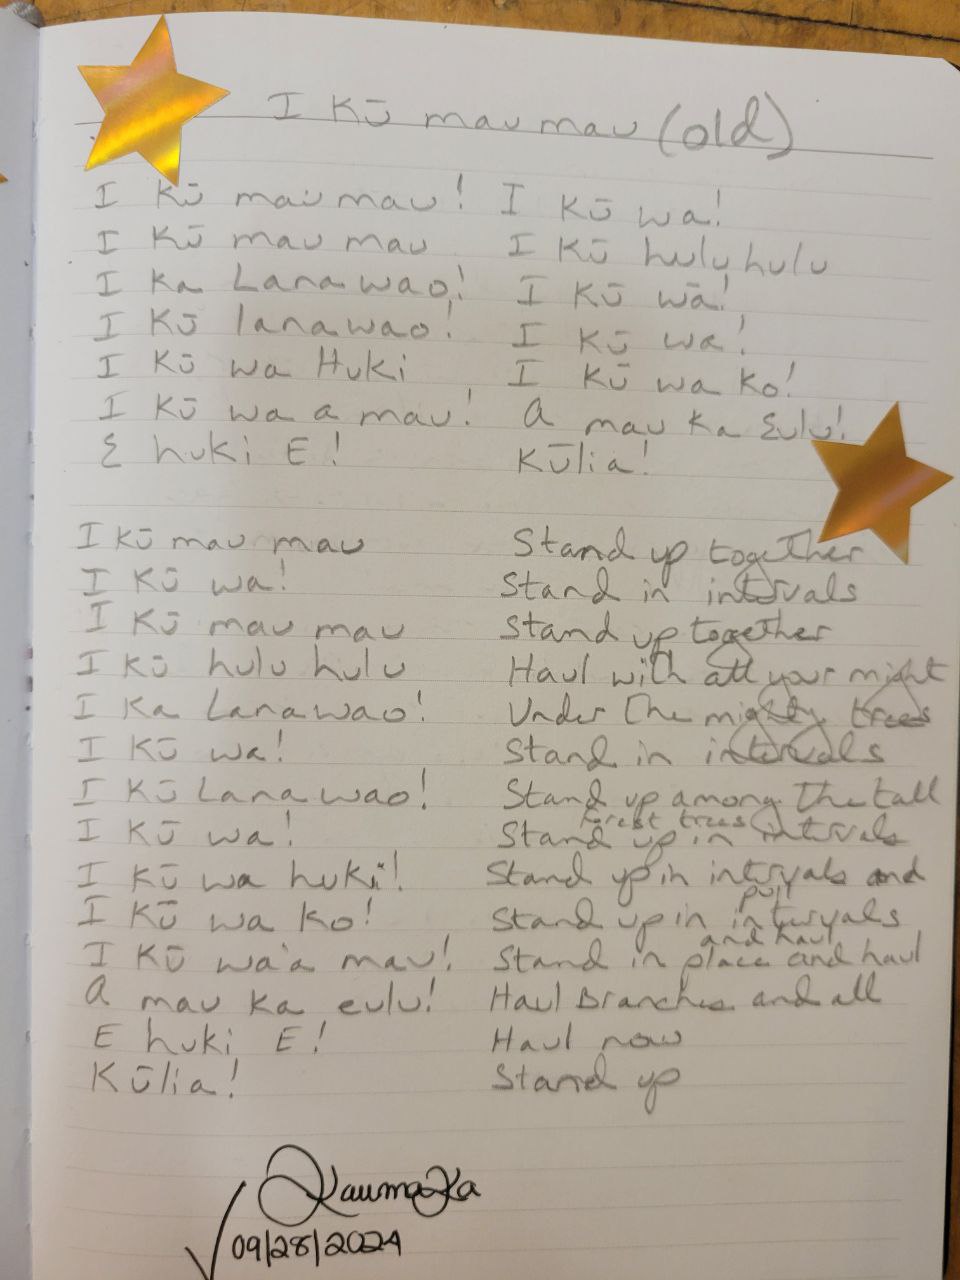 I Kū mau mau (old)
I Kū mau mau! I Kū wa!
I Kū mau mau I Kū hulu hulu
I Ka Lanawao! I Kū wā!
I Kū lanawao! I Kū wa!
I Kū wa Huki I Kū wa Ko!
I Kū wa a mau! A mau Ka Eulu!
E huki E! Kūlia!
I Kū mau mau Stand up together
I Kū wa! Stand in intervals
I Kū mau mau Stand up together
I Kū hulu hulu Haul with all your might
I Ka Lanawao! Under The mighty trees
I Kū wa! Stand in intervals
I Kū Lanawao! Stand up among The tall
forest trees
I Kū wa! Stand up in intervals
I Kū wa huki! Stand up in intervals and
pull
I Kū wa ko! Stand up in intervals
and haul
I Kū wa'a mau! Stand in place and haul
A mau Ka eulu! Haul Branches and all
E huki E! Haul now
Kūlia! Stand up
KaumaKa
09/28/2024